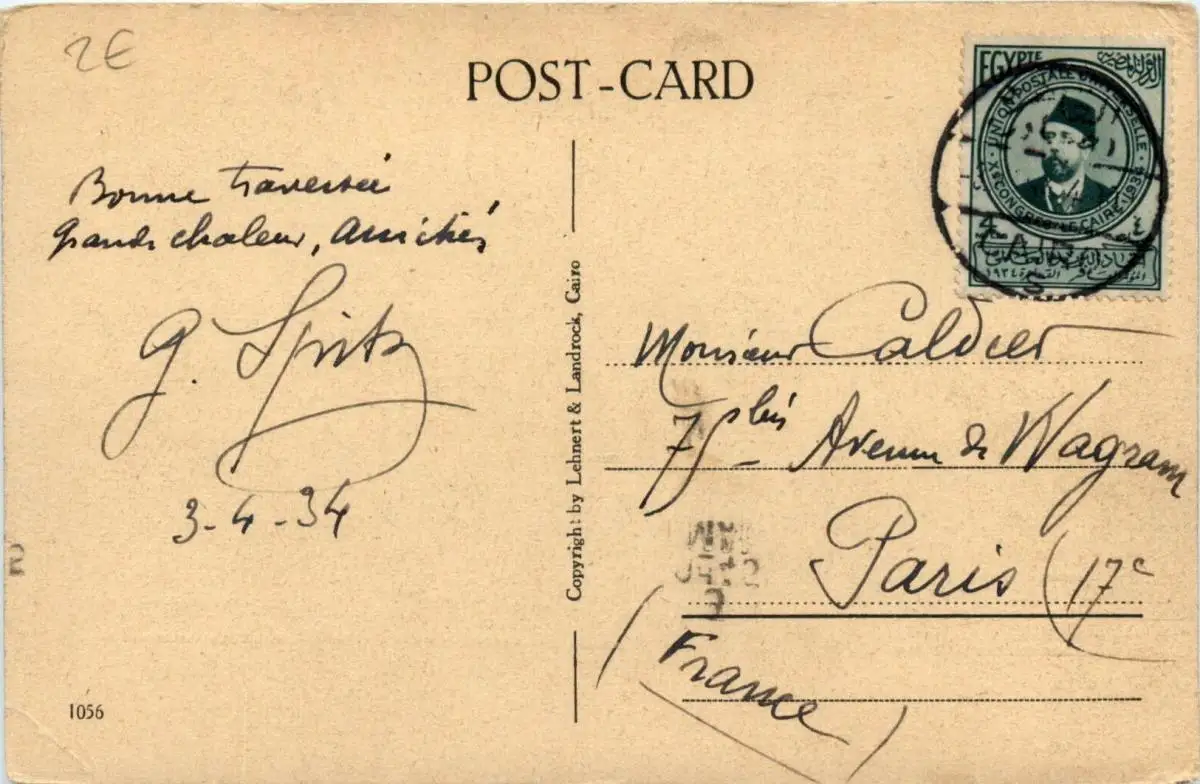 2€
POST-CARD
EGYPTE
UNION POSTALE UNIVERSELLE
Xᵉ CONGRES · LE CAIRE · 1934
١٩٣٤
CAIRO
Bonne traversée
Grande chaleur, Amitiés
G. Spitz
3-4-34
Copyright by Lehnert & Landrock, Cairo
Monsieur
75 bis Avenue de Wagram
Paris (17e
(France)
1056